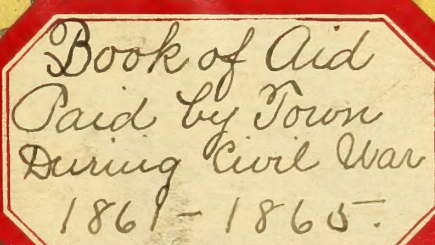 Book of Aid
Paid by Town
During Civil War
1861-1865.